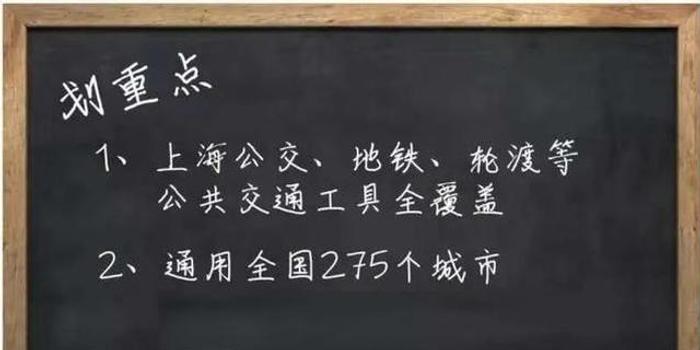 划重点
1、上海公交、地铁、轮渡等
公共交通工具全覆盖
2、通用全国275个城市